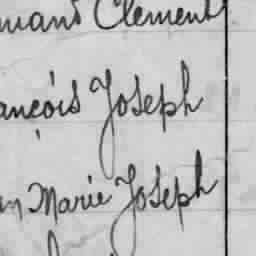 mand Clement
ançois Joseph
n Marie Joseph